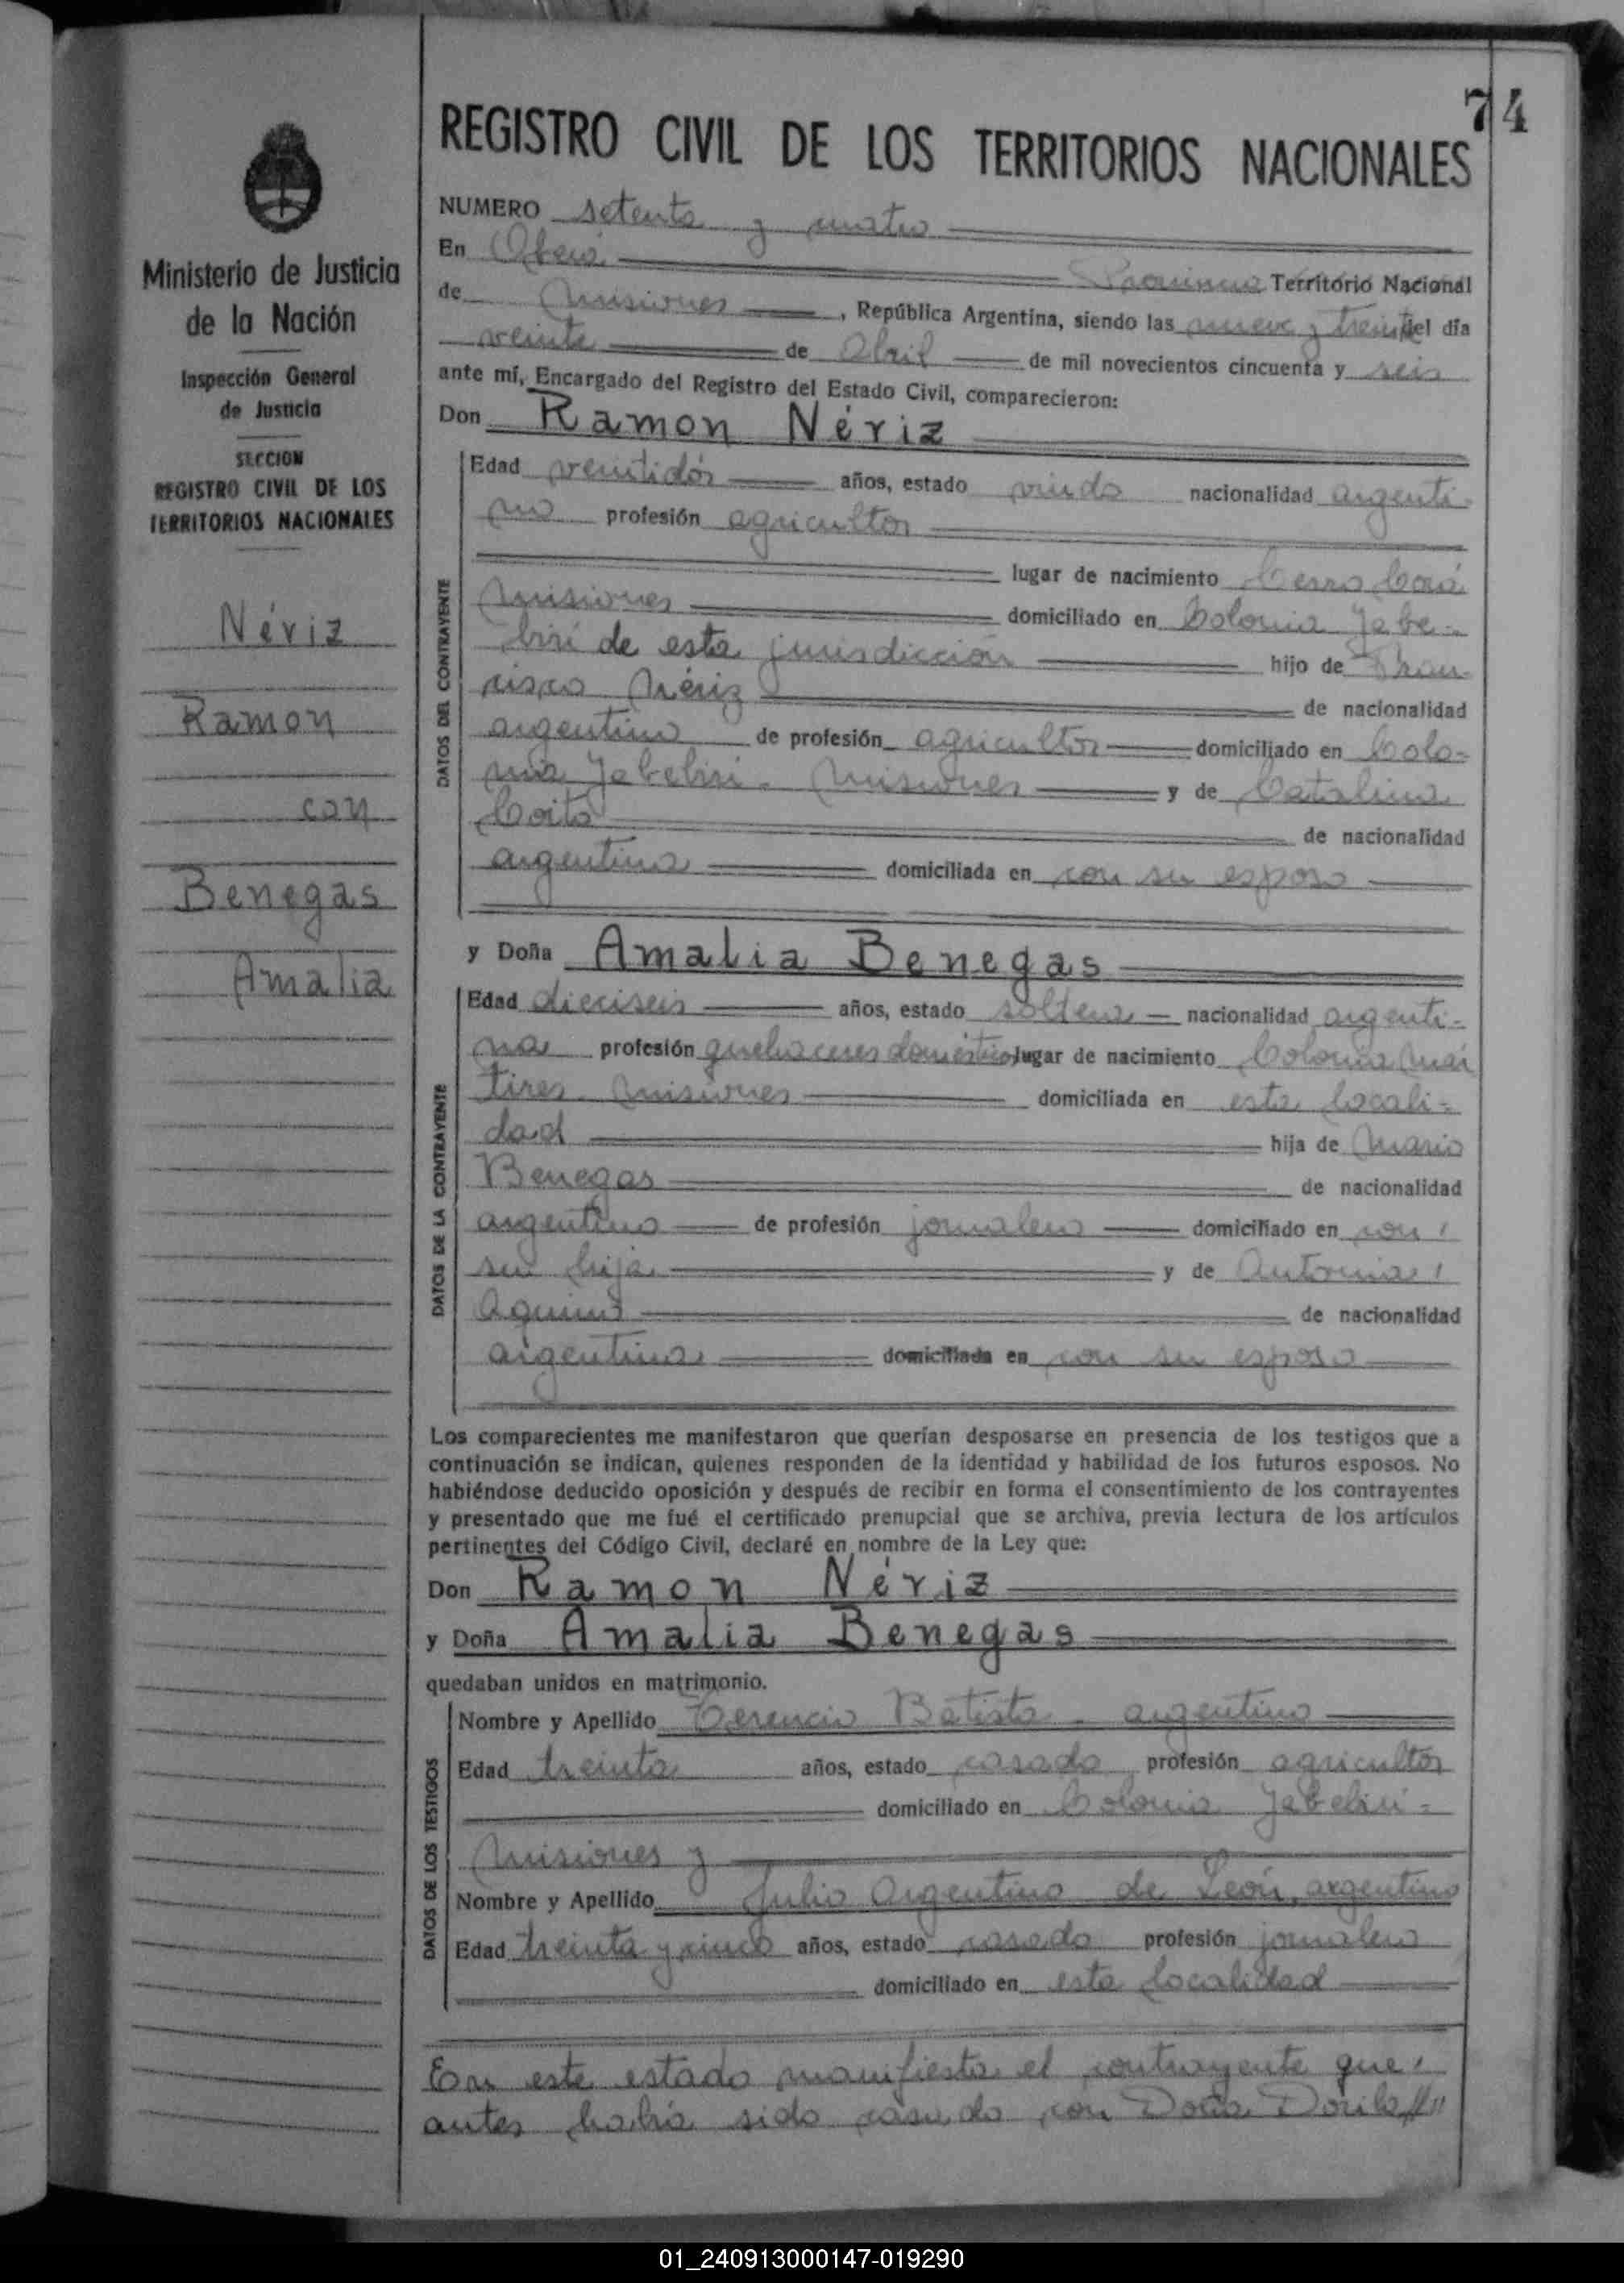 74
REGISTRO CIVIL DE LOS TERRITORIOS NACIONALES
Ministerio de Justicia
de la Nación
Inspección General
de Justicia
SECCION
REGISTRO CIVIL DE LOS
TERRITORIOS NACIONALES
Nériz
Ramon
con
Benegas
Amalia
NUMERO setenta y cuatro
En Oberá Provincia Territorio Nacional
de Misiones, República Argentina, siendo las nueve y treinta del día
veinte de Abril de mil novecientos cincuenta y seis
ante mí, Encargado del Registro del Estado Civil, comparecieron:
Don Ramon Nériz
DATOS DEL CONTRAYENTE
Edad veintidós años, estado viudo nacionalidad argenti-
no profesión agricultor
lugar de nacimiento Cerro Corá
Misiones domiciliado en Colonia Yabe-
biri de esta jurisdicción hijo de Fran-
cisco Nériz de nacionalidad
argentino de profesión agricultor domiciliado en Colo-
nia Yabebiri - Misiones y de Catalina
de nacionalidad
argentina domiciliada en con su esposo
y Doña Amalia Benegas
DATOS DE LA CONTRAYENTE
Edad dieciseis años, estado soltera nacionalidad argenti-
na profesión quehaceres domésticos lugar de nacimiento Colonia Már
tires - Misiones domiciliada en esta locali-
dad hija de Mario
Benegas de nacionalidad
argentino de profesión jornalero domiciliado en con
su hija y de Antonia
Aquino de nacionalidad
argentina domiciliada en con su esposo
Los comparecientes me manifestaron que querían desposarse en presencia de los testigos que a
continuación se indican, quienes responden de la identidad y habilidad de los futuros esposos. No
habiéndose deducido oposición y después de recibir en forma el consentimiento de los contrayentes
y presentado que me fué el certificado prenupcial que se archiva, previa lectura de los artículos
pertinentes del Código Civil, declaré en nombre de la Ley que:
Don Ramon Nériz
y Doña Amalia Benegas
quedaban unidos en matrimonio.
DATOS DE LOS TESTIGOS
Nombre y Apellido Terencio Batista - argentino
Edad treinta años, estado casado profesión agricultor
domiciliado en Colonia Yabebiri -
Misiones y
Nombre y Apellido Julio Argentino de León, argentino
Edad treinta y cinco años, estado casado profesión jornalero
domiciliado en esta localidad
En este estado manifiesta el contrayente que
antes había sido casado con Doña Dorila //"
01_240913000147-019290